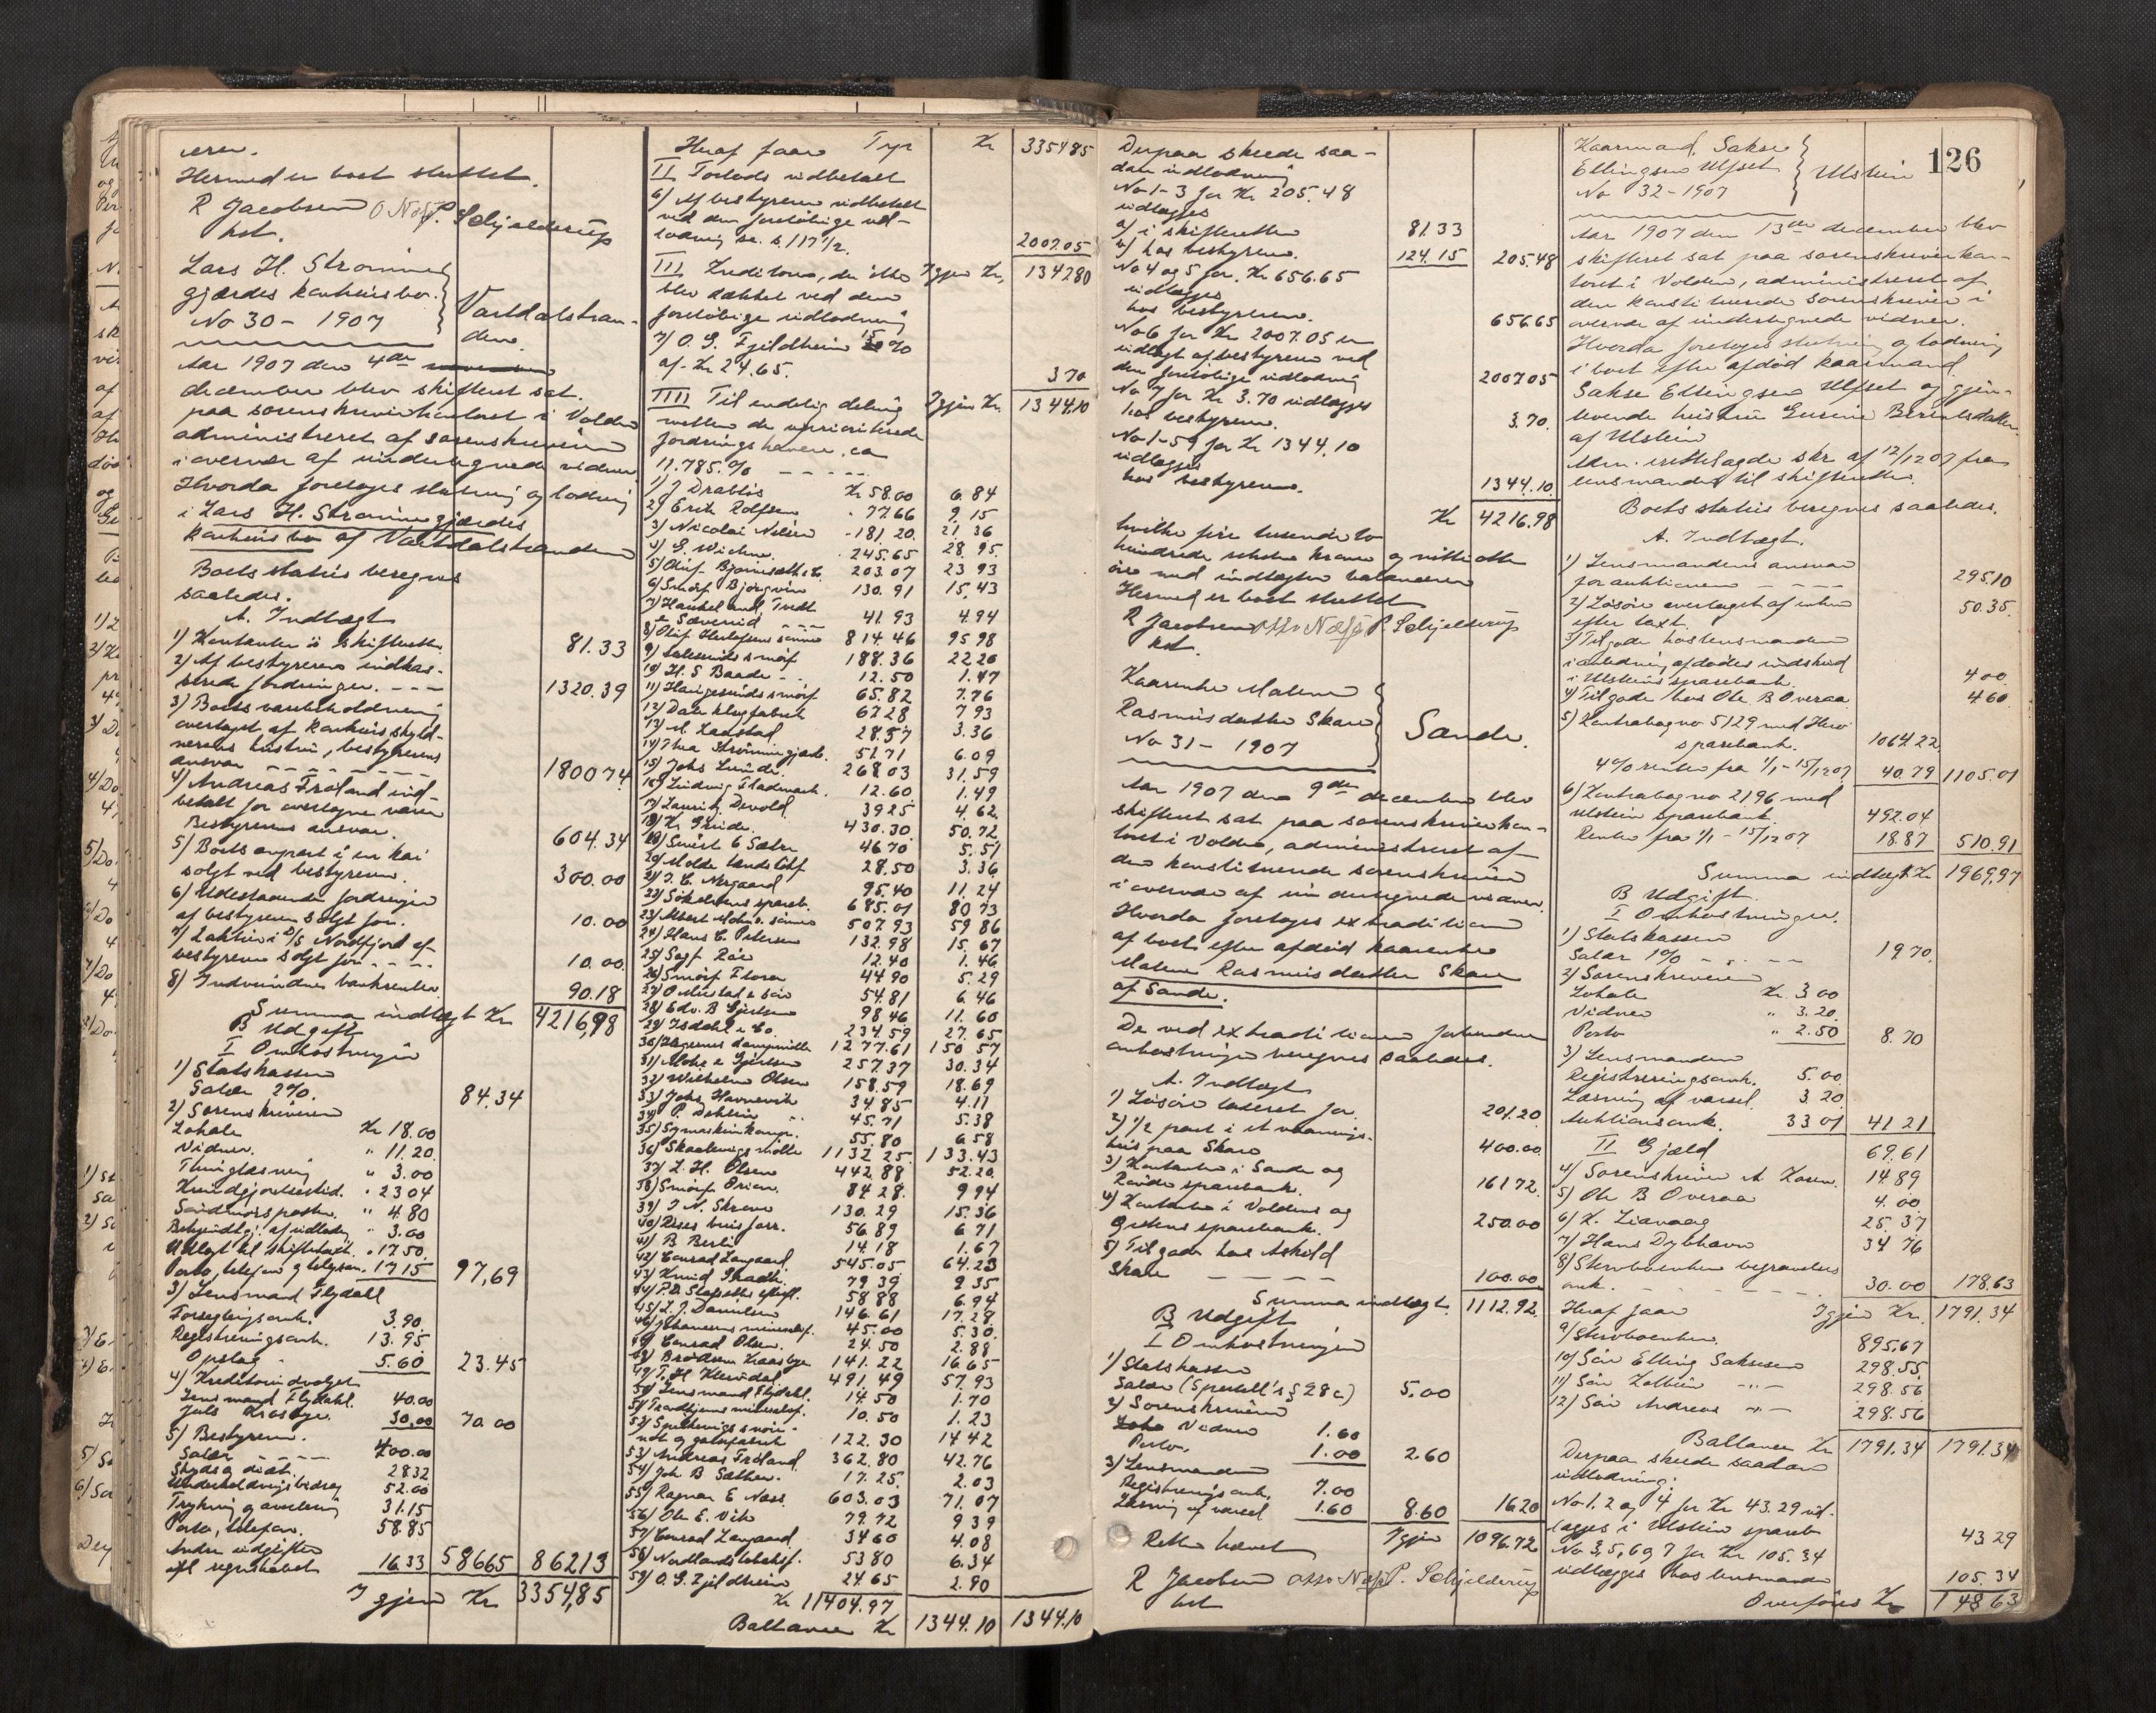 eren.
Hermed er boet sluttet.
R Jacobsen O Næsø P. Schjelderup
kst.
Lars H. Strømme
gjærdes konkursbo.
No 30 - 1907
Vartdalstran-
den.
Aar 1907 den 4de
december blev skifteret sat
paa sorenskriverkontoret i Volden
administreret af sorenskriveren
i overvær af undertegnede vidner
Hvorda foretoges slutning og lodning
i Lars H. Strømmegjærdes
konkursbo af Vartdalstranden
Boets status beregnes
saaledes.
A. Indtægt
1) Kontanter i skifteretten 81.33
2) Af bestyreren indkas-
serede fordringer. - - - 1320.39
3) Boets varebeholdning
overtaget af konkursskyld-
nerens hustru, bestyrerens
ansvar - - - - - - 1800 74
4) Andreas Frøland ind-
betalt for overtagne varer
Bestyrerens ansvar. 604.34
5) Boets anpart i en kai
solgt ved bestyreren. 300.00
6) Udestaaende fordringer
af bestyreren solgt for. 10.00
7) 2 aktier i D/S Nordfjord af
bestyreren solgt for - - - 10.00
8) Indvundne bankrenter 90.18
Summa indtægt Kr 4216,98
B Udgift
I Omkostninger
1) Statskassen
Salær 2%. 84.34
2) Sorenskriveren
Lokale Kr 18.00
Vidner. " 11.20
Thinglæsning " 3.00
Kundgjørelsestid. " 23 04
Søndmørsposten. " 4.80
Bekjendtgj. af udlodn. " 3.00
Udlagt til skiftetaxt. " 17 50
Porto, telefon og telegram. 17 15 97,69
3) Lensmand Flydahl
Forseglingsomk. 3.90
Registreringsomk. 13.95
Opslag 5.60 23.45
4) Kreditorudvalget
Lensmand Flydahl. 40.00
Juls Krosbye. 30,00 70 00
5) Bestyreren.
Salær - - - - 400.00
Skyds og diæt. 28 32
Underholdningsbidrag 52.00
Trykning og avertering 31.15
Porto, telefon. 58.85
Andre udgifter
efl regnskabet 16.33 586 65 862 13
Igjen Kr 3354,85
Heraf faar Igj Kr 3354 85
II Forlods udbetalt
6) Af bestyreren udbetalt
ved den foreløbige ud-
lodning se. s. 117 1/2. 2007.05
III Kreditorer, der ikke Igjen Kr. 1347 80
blev dækket ved den
foreløbige udlodning
7) O. G. Fjeldheim 15 %
af. Kr 24.65. 3 70
IIII Til endelig deling Igjen Kr. 1344.10
mellem de uprioriterede
fordringshavere, ca
11.785. % - - - - -
1) J Drabløs Kr 58.00 6.84
2) Erik Rolfsen " 77.66 9,15
3) Nicolai Nilsen - 181 20. 21 36
4) G. Wichne. . 245.65 28 95.
5) Oluf Bjørnseth & C. 203.07 23 93
6) Smørf Bjørgvin 130. 91 15,43
7) Haukel and Tvedt
& Sævereid - - - 41 93 4.94
8) Oluf Herlofsens sønner 814 46 95 98
9) Aalesunds smørf 188.36 22 20
10) H. S Baade - . 12.50 1.47
11) Haugesunds smørf. 65.82 7.76
12) Dale klæpfabrik 67 28 7 93
13) M. Ladstad 28.57 3.36
14) Thea Strømmegjærde. 51.71 6.09
15) Johs Lunde. 268 03 31.59
16) Ludvig Flademark. 12.60 1.49
17) Lauritz Devold. 39 25 4. 62
18) Kr. Giride. 430.30. 50.72
19) Sivert E Sæter 46 70 5.51
20) Molde landsbktf 28.50 3.36
21) J. C. Nergaard 95.40 11 24
22) Søkelvens spareb. 685.01 80 73
23) Albert Mohn & sønner 507.93 59 86
24) Hans C. Petersen 132.98 15. 67
25) Sigf Roe 12.40 1.46
26) Smørf Flora 44 90 5.29
27) O Aarstad & Søn 54.81 6.46
28) Edv. B Gjertsen 98 46 11. 60
29) Isdahl & Co. 234 59 27. 65
30) Hegrenes dampmølle 1277.61 150 57
31) Mohr & Gjertsen 257.37 30.34
32) Wilhelm Olsen 158.59 18.69
33) Johs Havnevik 34 85 4.11
34) P. Dehlin . . 45.71 5.38
35) Symaskinkomp. 55.80 6 58
36) Skaalevigs mølle 1132 25. 133.43
37) L. H. Olsen 442,88 52.20
38) Smørf Orion. 84 28. 9 94
39) J. N. Skrane 130.29 15.36
40) Reses husforr. 56 89 6 71
41) B Berli 14 18 1.67
42) Conrad Langaard. 545.05 64.23
43) Knud Skadh. 79 39 9 35
44) P. D. Slagseths efterf. 58 88 6.94
45) L. J. Danielsen 146.61 17.28
46) Johansens mineralf. 45.00 5.30.
47) Conrad Olsen. 24.50 2.88
48) Brødrene Kraasbye 141.22 16 65
49) T. H. Klevdal. 491.49 57.93
50) Lensmand Flydahl. 14.50 1.70
51) Trondhjems mineralf. 10.50 1.23
52) Spilkevigs snøre-
not og garnfabrik 122.30 14 42
53) Andreas Frøland 362.80 42.76
54) Joh B Sæther. 17.25. 2.03
55) Ragnar E Næss. 603.03 71.07
56) Ole E. Vik 79.72 9 39
57) Conrad Langaard 34 60 4.08
58) Nordlands tobaksf. 53 80 6.34
59) O. G. Fjeldheim 24.65 2.90
Kr 11404.97
Ballance Kr 1344.10 1344.10
Derpaa skeede saa-
dan udlodning
No 1-3 for Kr 205.48
udlægges
a) i skifteretten 81.33
b) hos bestyreren. 124.15 205.48
No 4 og 5 for. Kr 656.65
udlægges
hos bestyreren. 656.65
No 6 for Kr 2007.05 er
udlagt af bestyreren ved
den foreløbige udlodning 2007.05
No 7 for Kr 3.70 udlægges
hos bestyreren. 3.70.
No 1-59 for Kr 1344.10
udlægges
hos bestyreren. 1344.10
Kr 4216.98
hvilke fire tusende to
hundrede seksten kroner og nitti otte
øre med indtægten balancerer
Hermed er boet sluttet
R Jacobsen Otto Næsø P. Schjelderup
kst.
Kaarenke Malene
Rasmusdatter Skare
No 31 - 1907
Sande.
Aar 1907 den 9de december blev
skifteret sat paa sorenskriverkon-
toret i Volden, administreret af
den konstituerede sorenskriver
i overvær af undertegnede vidner.
Hvorda foretoges extradition
af boet efter afdød kaarenke
Malene Rasmusdatter Skare
af Sande.
De ved extraditionen forbundne
omkostninger beregnes saaledes.
A. Indtægt
1) Løsøre taxeret for. 201.20
2) 1/2 part i et vaanings-
hus paa Skare 400.00
3) Kontanter i Sande og
Rovde sparebank. 161 72.
4) Kontanter i Voldens og
Ørstens sparebank. 250.00
5) Tilgode hos Askild
Skare - - - - - 100.00
Summa indtægt. 1112.92.
B Udgift
I Omkostninger
1) Statskassen
Salær (Sportell's § 28 c) 5.00
2) Sorenskriveren
Vidner 1.60
Porto, 1.00 2.60
3) Lensmanden
Registreringsomk. 7.00
Læsning af varsel 1.60 8.60 16 20
Retten hævet Igjen 1096.72
R Jacobsen Otto Næsø P. Schjelderup
kst
126
Kaarmand Sakse
Ellingsen Ulfset
No 32 - 1907
Ulstein
Aar 1907 den 13de december blev
skifteret sat paa sorenskriverkon-
toret i Volden, administreret af
den konstituerede sorenskriver i
overvær af undertegnede vidner.
Hvorda foretoges slutning og lodning
i boet efter afdød kaarmand
Sakse Ellingsen Ulfset og gjen-
levende hustru Gurine Berntsdatter
af Ulstein
Adm. irettelagde skr. af 12/12 07 fra
lensmanden til skifteretten.
Boets status beregnes saaledes.
A. Indtægt.
1) Lensmandens ansvar
for auktionen - - - - 295.10
2) Løsøre overtaget af enken
efter taxt. 50.35.
3) Tilgode hos lensmanden
i anledning afdødes indskud
i Ulsteins sparebank. 4 00
4) Tilgode hos Ole B Overaa 4 60
5) Kontrabog no 5129 med Herø
sparebank. 1064.22
4% renter fra 1/1 - 15/12 07 40.79 1105.01
6) Kontrabog no 2196 med
Ulstein sparebank. 492.04
Renter fra 1/1 - 15/12 07 18.87 510.91
Summa indtægt Kr 1969,97
B Udgift.
I Omkostninger.
1) Statskassen
Salær 1% - . - - - 19 70.
2) Sorenskriveren
Lokale Kr. 3 00
Vidner " 3.20.
Porto " 2.50 8.70
3) Lensmanden
Registreringsomk. 5.00
Læsning af varsel. 3 20
Auktionsomk. 33 01 41 21
II Gjæld 69.61
4) Sorenskriver A Koren. 14 89
5) Ole B Overaa 4. 00
6) K. Liavaag 25. 37
7) Hans Dybhavn 34 76
8) Stervboenken begravelses
omk. - - - - - - 30.00 178.63
Heraf faar Igjen Kr. 1791.34
9) Stervboenken. 895,67
10) Søn Elling Saksesen 298.55
11) Søn Kolbein - " - 298.56
12) Søn Andreas - " - 298.56
Ballance Kr 1791.34 1791.34
Derpaa skeede saadan
udlodning:
No 1. 2 og 4 for Kr 43.29 ud-
lægges i Ulstein spareb 43 29
No 3, 5, 6 og 7 for Kr 105.34
udlægges hos lensmanden 105.34
Overføres Kr 148 63